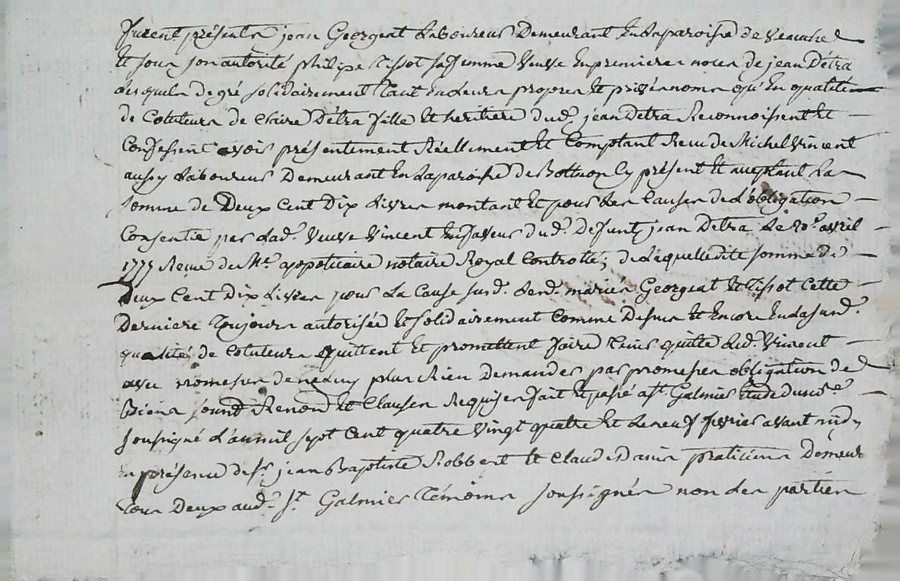 furent présents jean Georgeat Laboureur Demeurant En La paroisse de veauche
Et sous son autorité philipe Tissot sa femme veuve En premieres noces de jean Détra
Lesquels de gré solidairement tant En Leurs propres Et privés noms qu'En qualité
de Cotuteurs de Claire Détra fille Et heritiere dud. jean Detra Reconnoissent Et
Confessent avoir présentement Réellement Et Comptant Recu de Michel Vincent
aussy Laboureur Demeurant En La paroisse de present Et aceptant La
somme de Deux Cent Dix Livres montant Et pour Les Causes de L'obligation
Consentie par Lad. veuve Vincent En faveur dud. Defunt jean Detra Le 20e. avril
1775 Recue de Me. notaire Royal Controlé; de Laquelle dite somme de
Deux Cent Dix Livres pour La Cause susd. Lesd. mariés Georgeat Et Tissot Cette
Derniere Toujours autorisée Et solidairement Comme Dessus Et Encore En La susd.
qualité de Cotuteurs quittent Et promettent faire Tenir quitte Led. Vincent
avec promesse de n'En plus Rien Demander par promesses obligation de
Biens soumd. Renond. Et Clauses Requises fait Et passé a St. Galmier Etude du nore.
soussigné L'an mil sept Cent quatre vingt quatre Et Le neuf fevrier avant midy
En présence de sr. jean Baptiste Robbert Et Claude praticiens Demeur
tous Deux aud. St. Galmier Témoins soussignés non Les parties